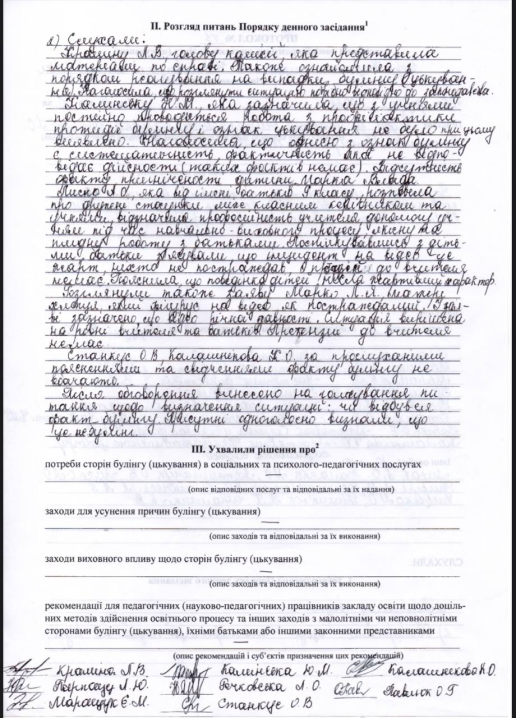 ІІ. Розгляд питань Порядку денного засідання¹
2) Слухали:
Кралину Л.В. голову комісії, яка представила
матеріали по справі. Також ознайомила з
порядком реагування на випадки булінгу (цькуван-
ня). Наголосила, що розглянути ситуацію потрібно відповідно до законодавства.
Калинську Ю.М., яка зазначила що з учнями
постійно проводиться робота з профілактики
протидії булінгу і ознак цькування не було при цьому
виявлено. Наголосила, що однією з ознак булінгу
є систематичність, фактичність якої не відпо-
відає дійсності (таких фактів немає). Відсутність
факту принижености дитини Марка
Лиско Л.О, яка від імені батьків класу, розповіла
про дружні стосунки між класним керівником та
учнями, відзначила професійність учителя допомогу уч-
ням під час навчально-виховного процесу якісну та
плідну роботу з батьками. Поспілкувавшись з діть-
ми батьки з'ясували що інцидент на відео це
жарт, ніхто не постраждав, претензій до вчителя
немає. Пояснила, що поведінка дітей несла реактивний характер.
Розглянули також заяву Манко Л.М. матері
хлопця, який фігурує на відео як постраждалий. У зая-
ві зазначено, що відео річної давності. Ситуація вирішена
на рівні вчителя та батьків. Претензій до вчителя
немає.
Станкус О.В, Калашнікова К.О. за прослуханими
поясненнями та свідченнями факту булінгу не
вбачають.
Після обговорення винесено на голосування пи-
тання щодо визначення ситуації: чи відбувся
факт булінгу. Присутні одноголосно визнали, що
це не булінг.
ІІІ. Ухвалили рішення про²
потреби сторін булінгу (цькування) в соціальних та психолого-педагогічних послугах
—
(опис відповідних послуг та відповідальні за їх надання)
заходи для усунення причин булінгу (цькування)
—
(опис заходів та відповідальні за їх виконання)
заходи виховного впливу щодо сторін булінгу (цькування)
—
(опис заходів та відповідальні за їх виконання)
рекомендації для педагогічних (науково-педагогічних) працівників закладу освіти щодо доціль-
них методів здійснення освітнього процесу та інших заходів з малолітніми чи неповнолітніми
сторонами булінгу (цькування), їхніми батьками або іншими законними представниками
—
(опис рекомендацій і суб'єктів призначення цих рекомендацій)
Кралина Л.В. Калинська Ю.М. Калашнікова К.О.
Л.Ю. Рочковська Л.О. Павлюк О.Г
Маращук Є.М. Станкус О.В